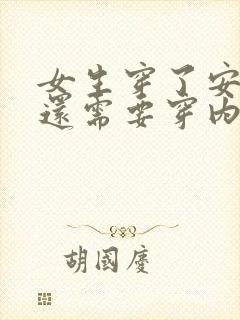 女生穿了安
還需要穿内
胡國慶